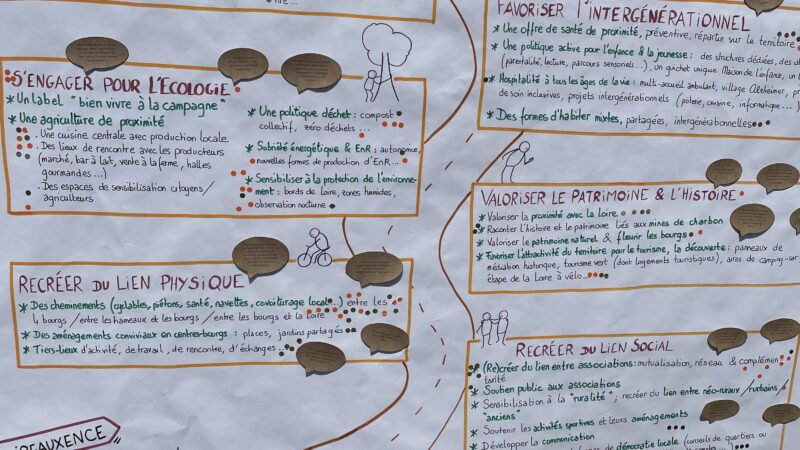 S'ENGAGER POUR L'ECOLOGIE
* Un label "bien vivre à la campagne"
* Une agriculture de proximité
. Une cuisine centrale avec production locale
. Des lieux de rencontre avec les producteurs
(marché, bar à lait, vente à la ferme, halles
gourmandes...)
. Des espaces de sensibilisation citoyens/
agriculteurs
* Une politique déchet : compost
collectif, zéro déchets...
* Sobriété énergétique & EnR : autonomie,
nouvelles formes de production d'EnR...
* Sensibiliser à la protection de l'environne-
ment : bords de Loire, zones humides,
observation nocturne
FAVORISER L'INTERGÉNÉRATIONNEL
* Une offre de santé de proximité, préventive, répartie sur le territoire
* Une politique active pour l'enfance & la jeunesse : des structures dédiées, des
(parentalité, lecture, parcours sensoriels...), un guichet unique Maison de l'enfance, un
* Hospitalité à tous les âges de la vie : multi-accueil ambulant, village Alzheimer,
de soin inclusives, projets intergénérationnels (poterie, cuisine, informatique...)
* Des formes d'habiter mixtes, partagées, intergénérationnelles
VALORISER LE PATRIMOINE & L'HISTOIRE
* Valoriser la proximité avec la Loire
* Raconter l'histoire et le patrimoine liés aux mines de charbon
* Valoriser le patrimoine naturel & fleurir les bourgs
* Favoriser l'attractivité du territoire pour le tourisme, la découverte : panneaux de
médiation historique, tourisme vert (dont logements touristiques), aires de camping-car,
étape de la Loire à vélo...
RECRÉER DU LIEN PHYSIQUE
* Des cheminements (cyclables, piétons, santé, navettes, covoiturage local...) entre les
4 bourgs / entre les hameaux et les bourgs / entre les bourgs et la Loire
* Des aménagements conviviaux en centres-bourgs : places, jardins partagés
* Tiers-lieux d'activité, de travail, de rencontre, d'échanges...
RECRÉER DU LIEN SOCIAL
* (Re)créer du lien entre associations : mutualisation, réseau & complémen
tarité
* Soutien public aux associations
* Sensibilisation à la "ruralité" ; recréer du lien entre néo-ruraux/rurbains /
"anciens"
* Soutenir les activités sportives et leurs aménagements
* Développer la communication
de démocratie locale (conseils de quartiers ou
IREAUXENCE